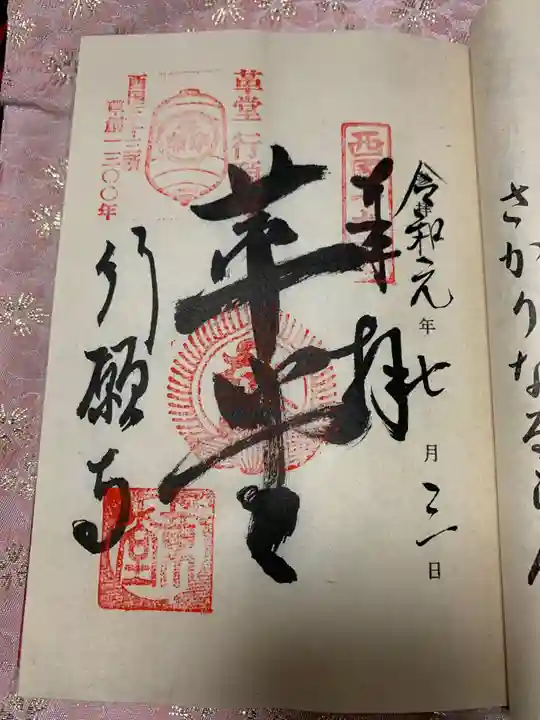 さかりなる
令和元年七月二一日
奉拝
革堂
行願寺
革堂 行
西国三十三所
草創一三〇〇年
西国
革堂